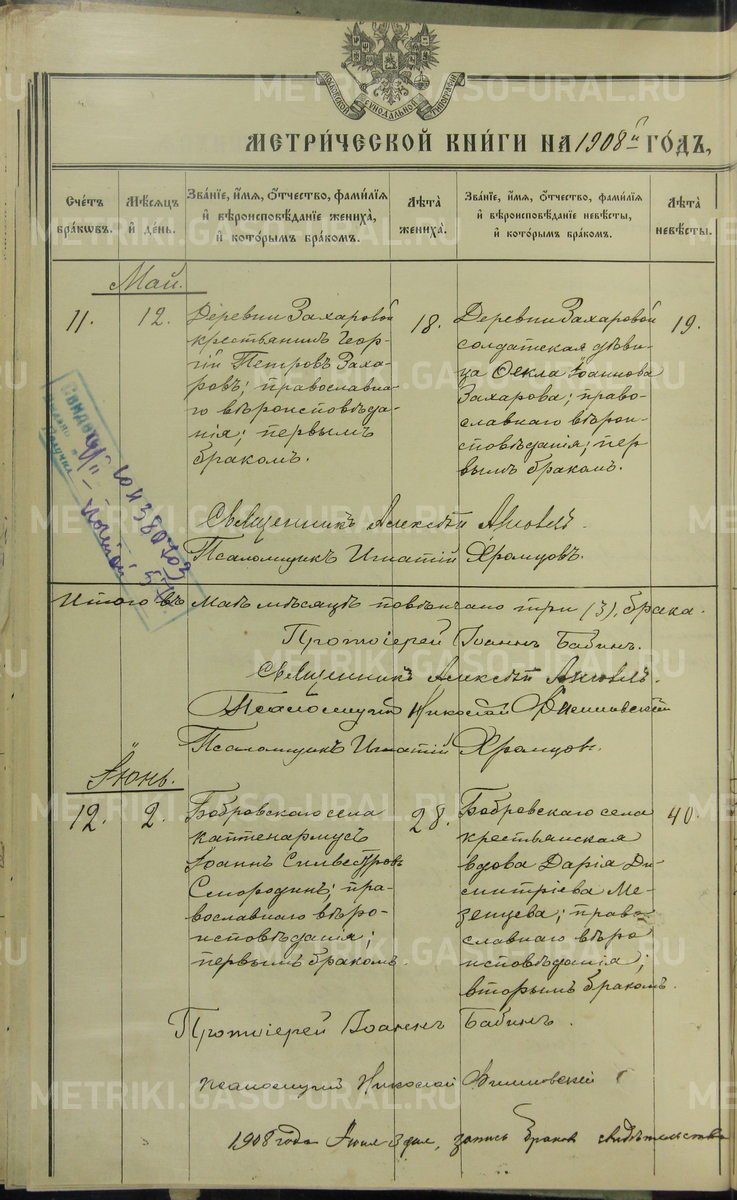 МОСКОВСКОЙ СѴНОДАЛЬНОЙ ТИПОГРАФІИ
METRIKI.GASO-URAL.RU
МЕТРИ́ЧЕСКОЙ КНИ́ГИ НА 1908й ГО́ДЪ,
Сче́тъ бра́кѡвъ.
Мѣ́сѧцъ и҆ де́нь.
Зва́нїе, и҆́мѧ, ѻ҆́тчество, фами́лїѧ и҆ вѣроисповѣ́данїе жениха̀, и҆ кото́рымъ бра́комъ.
Лѣ́та жениха̀.
Зва́нїе, и҆́мѧ, ѻ҆́тчество, фами́лїѧ и҆ вѣроисповѣ́данїе невѣ́сты, и҆ кото́рымъ бра́комъ.
Лѣ́та невѣ́сты.
Май.
11.
12.
Деревни Захаровой
крестьянинъ Геор-
гій Петровъ Заха-
ровъ; православна-
го вѣроисповѣда-
нія; первымъ
бракомъ.
18.
Деревни Захаровой
солдатская дѣви-
ца Ѳекла Іоаннова
Захарова; право-
славнаго вѣрои-
сповѣданія; пер-
вымъ бракомъ.
19.
Священникъ Алексѣй
Псаломщикъ Игнатій Хромцовъ.
Итого въ Маѣ мѣсяцѣ повѣнчано три (3) брака.
Протоіерей Іоаннъ Бабинъ.
Священникъ Алексѣй
Псаломщикъ Николай
Псаломщикъ Игнатій Хромцовъ.
Іюнь.
12.
2.
Бобровскаго села
каптенармусъ
Іоаннъ Сильвестровъ
Смородинъ; пра-
вославнаго вѣро-
исповѣданія;
первымъ бракомъ.
28.
Бобровскаго села
крестьянская
вдова Дарія Ди-
митріева Ме-
зенцева; право-
славнаго вѣро
исповѣданія;
вторымъ бракомъ.
40.
Протоіерей Іоаннъ Бабинъ.
Псаломщикъ Николай
1908 года Іюля 3 дня, запись браковъ свидѣтельство